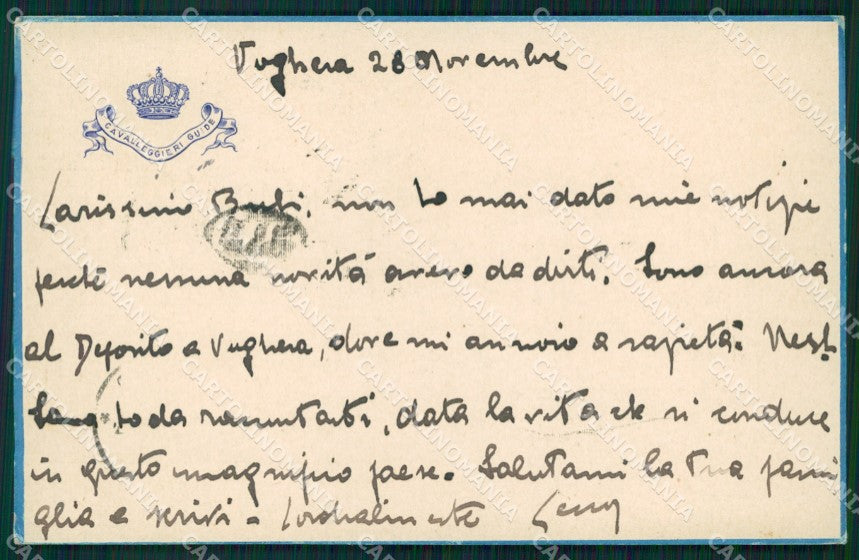 Voghera 28 Novembre
CAVALLEGGIERI GUIDE
Carissimo Bubi, non ho mai dato mie notizie
perché nessuna novità avevo da dirti. Sono ancora
al Deposito a Voghera, dove mi annoio a sazietà.
ho da raccontarti, data la vita che si conduce
in questo magnifico paese. Salutami la tua fami
glia e scrivi - Cordialmente